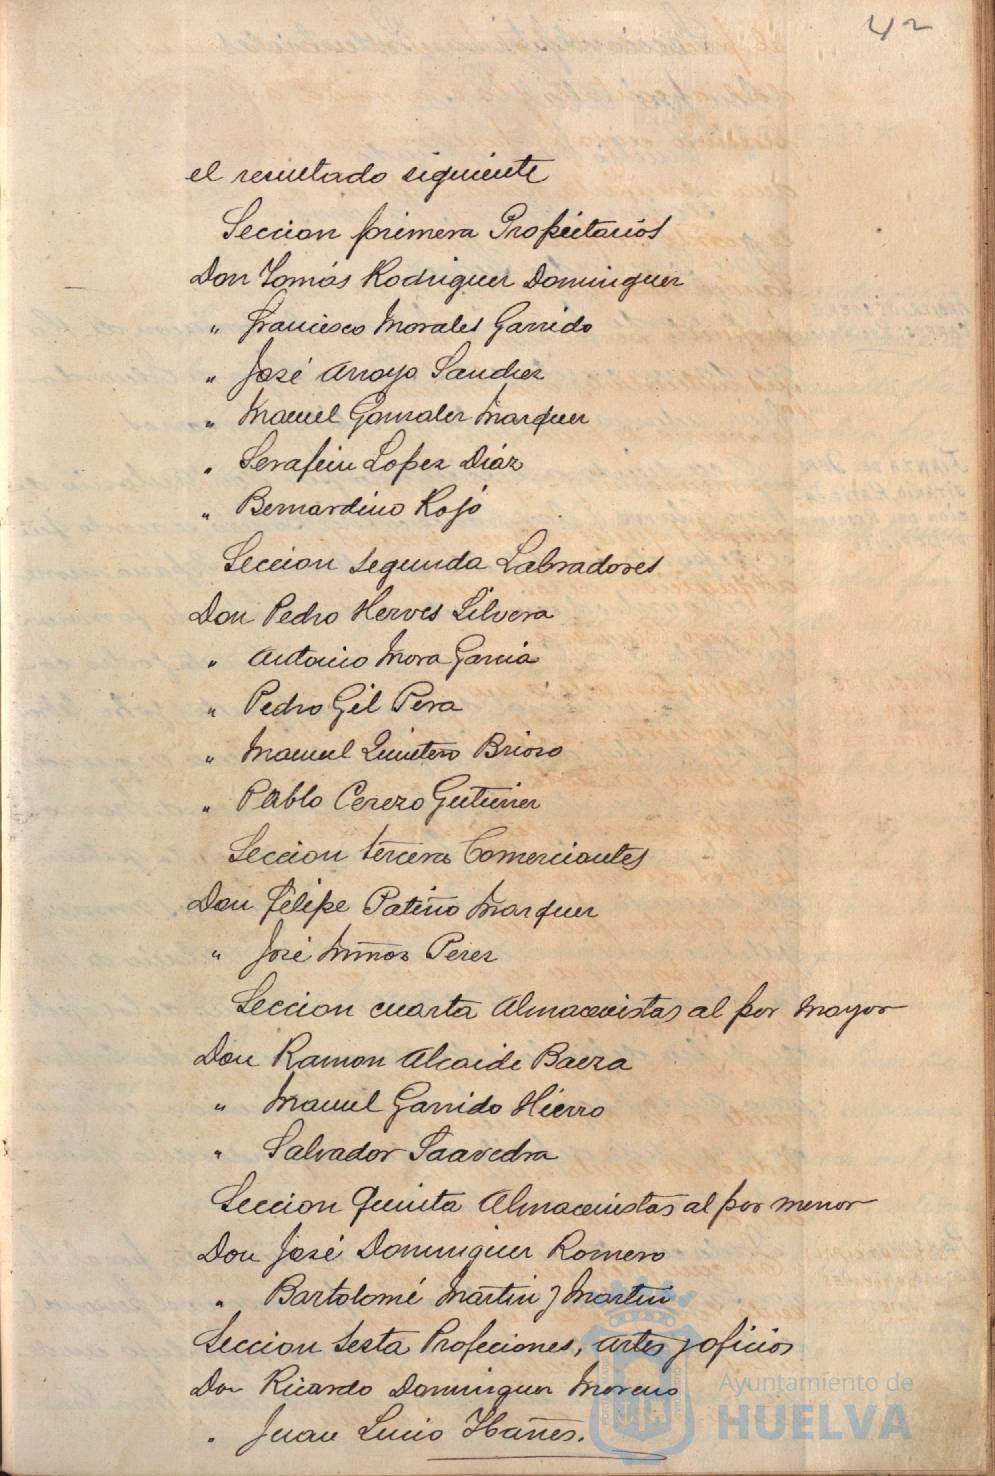 42
el resultado siguiente
Seccion primera Propietarios
Don Tomás Rodriguez Dominguez
" Francisco Morales Garrido
" José Arroyo Sanchez
" Manuel Gonzalez Marquez
" Serafin Lopez Diáz
" Bernardino Rojo
Seccion segunda Labradores
Don Pedro Herves Silvera
" Antonio Mora Garcia
" Pedro Gil Pera
" Manuel Quintero Brioso
" Pablo Cerezo Gutierrez
Seccion tercera Comerciantes
Don Felipe Patiño Marquez
" José Muñoz Perez
Seccion cuarta Almacenistas al por Mayor
Don Ramon Alcaide Baeza
" Manuel Garrido Hierro
" Salvador Saavedra
Seccion Quinta Almacenistas al por menor
Don José Dominguez Romero
" Bartolomé Martin y Martin
Seccion Sexta Profeciones, artes y oficios
Don Ricardo Dominguez Moreno
" Juan Lucio Ibañes.
Ayuntamiento de
HUELVA